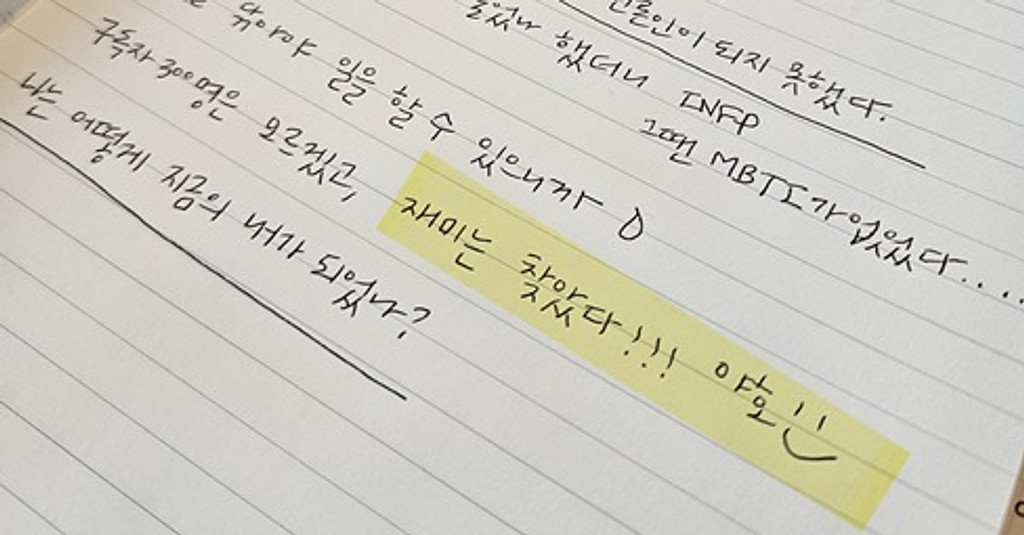 언론인이 되지 못했다.
했더니 INFP
그땐 MBTI가 없었다....
닦아야 일을 할 수 있으니까
구독자 300명은 모르겠고, 재미는 찾았다!!! 야호
나는 어떻게 지금의 내가 되었나?